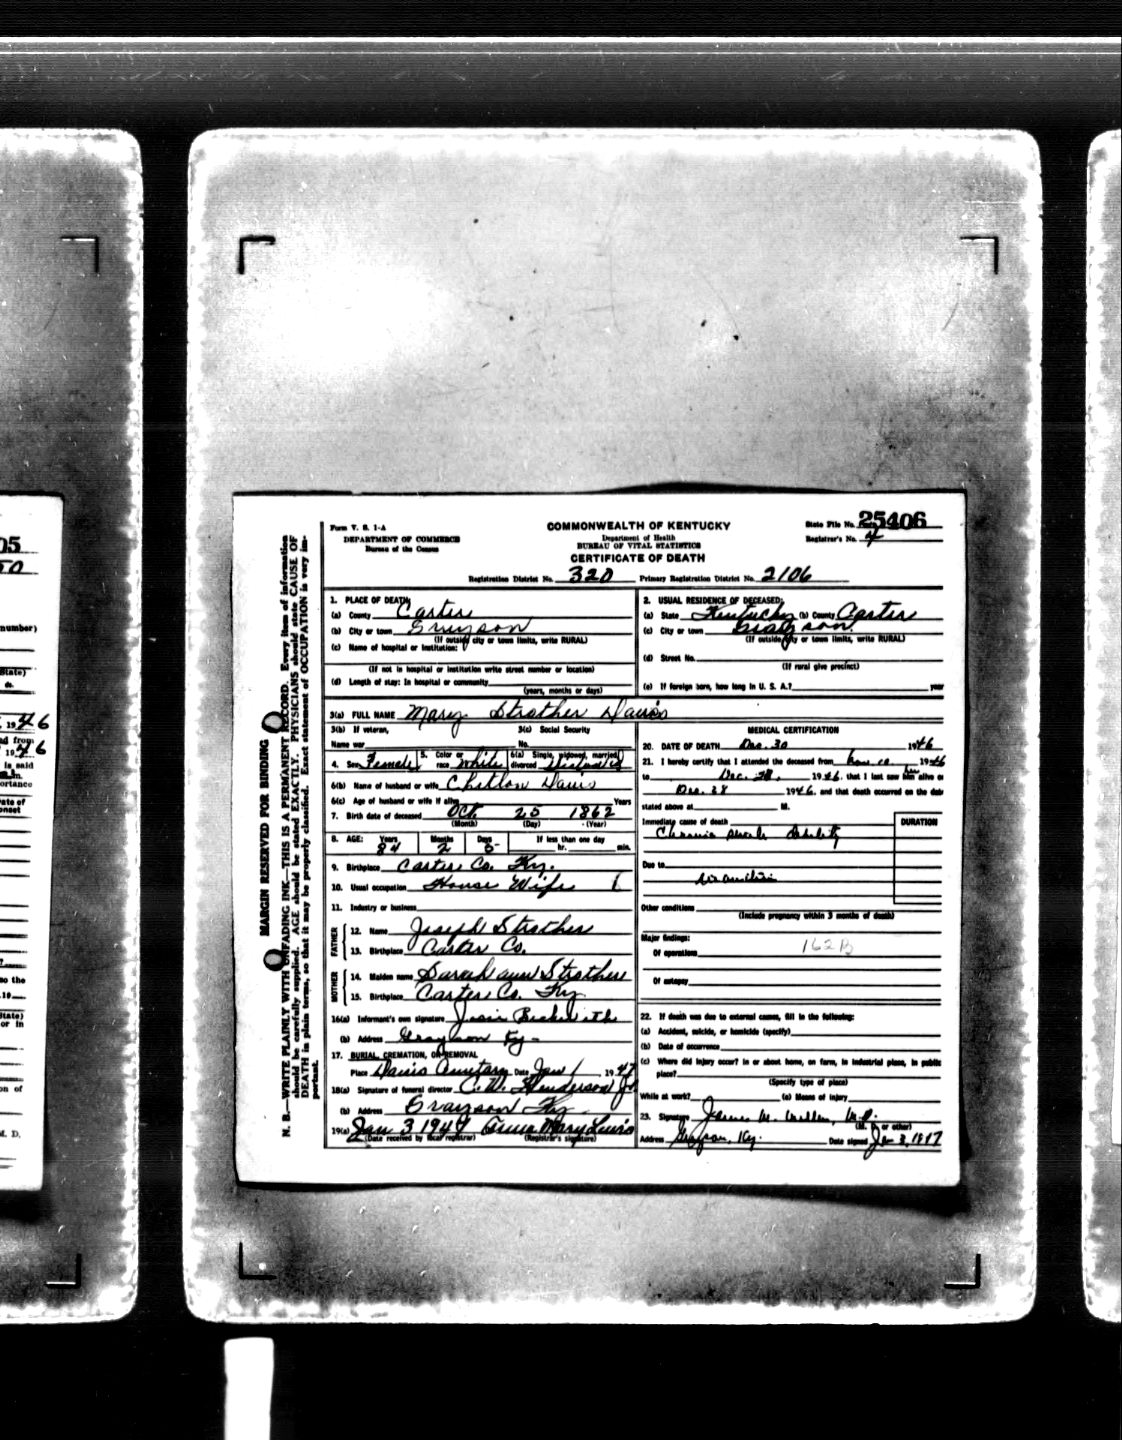 05
25406
Form V. S. 1-A
DEPARTMENT OF COMMERCE
Bureau of the Census
COMMONWEALTH OF KENTUCKY
Department of Health
BUREAU OF VITAL STATISTICS
CERTIFICATE OF DEATH
State File No. 25406
Registrar's No. 4
Registration District No. 320 Primary Registration District No. 2106
MARGIN RESERVED FOR BINDING
N. B.—WRITE PLAINLY WITH UNFADING INK—THIS IS A PERMANENT RECORD. Every item of information
should be carefully supplied. AGE should be stated EXACTLY. PHYSICIANS should state CAUSE OF
DEATH in plain terms, so that it may be properly classified. Exact statement of OCCUPATION is very im-
portant.
1. PLACE OF DEATH:
(a) County Carter
(b) City or town Grayson
(If outside city or town limits, write RURAL)
(c) Name of hospital or institution:
(If not in hospital or institution write street number or location)
(d) Length of stay: In hospital or community
(years, months or days)
2. USUAL RESIDENCE OF DECEASED:
(a) State Kentucky (b) County Carter
(c) City or town Grayson
(If outside city or town limits, write RURAL)
(d) Street No.
(If rural give precinct)
(e) If foreign born, how long in U. S. A.? year
3(a) FULL NAME Mary Strother Davis
3(b) If veteran,
Name war
3(c) Social Security
No.
4. Sex Female 5. Color or race White 6(a) Single, widowed, married, divorced Widowed
6(b) Name of husband or wife Davis
6(c) Age of husband or wife if alive Years
7. Birth date of deceased Oct 25 1862
(Month) (Day) (Year)
8. AGE: Years 84 Months 2 Days 5 If less than one day hr. min.
9. Birthplace Carter Co. Ky.
10. Usual occupation House Wife
11. Industry or business
FATHER
12. Name Joseph Strother
13. Birthplace Carter Co.
MOTHER
14. Maiden name Sarah ann Strother
15. Birthplace Carter Co. Ky
16(a) Informant's own signature Josie Beckwith
(b) Address Grayson Ky-
17. BURIAL, CREMATION, OR REMOVAL
Place Davis Date Jan 1 1947
18(a) Signature of funeral director C. W. Henderson Jr.
(b) Address Grayson Ky.
19(a) Jan 3 1947 Anna Mary Lewis
(Date received by local registrar) (Registrar's signature)
MEDICAL CERTIFICATION
20. DATE OF DEATH Dec. 30 1946
21. I hereby certify that I attended the deceased from 1946
to Dec. 28, 1946, that I last saw her alive on
Dec. 28 1946, and that death occurred on the date
stated above at M.
Immediate cause of death
DURATION
Chronic
Due to
Other conditions
(Include pregnancy within 3 months of death)
Major findings:
Of operations
162B
Of autopsy
22. If death was due to external causes, fill in the following:
(a) Accident, suicide, or homicide (specify)
(b) Date of occurrence
(c) Where did injury occur? In or about home, on farm, in industrial place, in public
place?
(Specify type of place)
While at work? (e) Means of injury
23. Signature M.D.
(M. D. or other)
Address Grayson, Ky. Date signed Jan 3, 1947